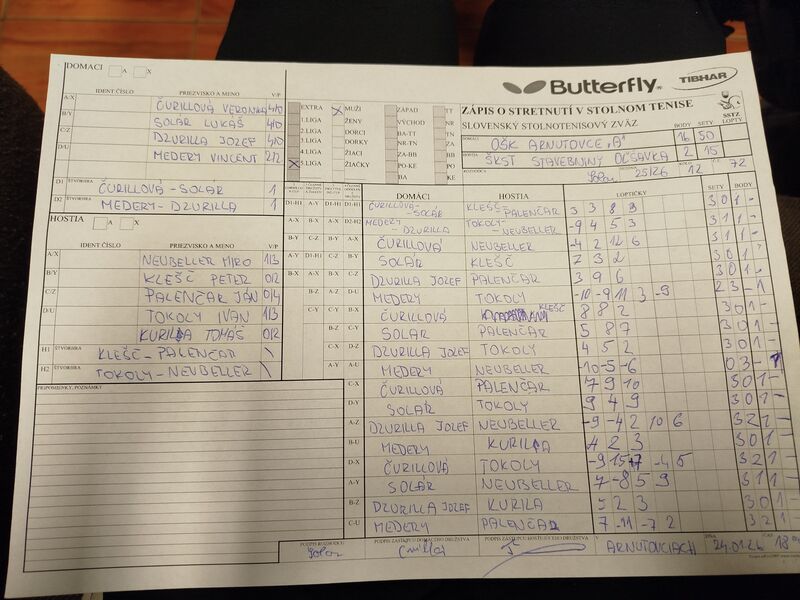 DOMÁCI A X
IDENT.ČÍSLO PRIEZVISKO A MENO V/P
A/X ČURILLOVÁ VERONIKA 4/0
B/Y SOLÁR LUKÁŠ 4/0
C/Z DZURILLA JOZEF 4/0
D/U MEDERY VINCENT 2/2
D1 ŠTVORHRA ČURILLOVÁ - SOLÁR 1
D2 MEDERY - DZURILLA 1
HOSTIA
IDENT.ČÍSLO PRIEZVISKO A MENO V/P
A/X NEUBELLER MIRO 1/3
B/Y KLEŠČ PETER 0/2
C/Z PALENČAR JÁN 0/4
D/U TOKOLY IVAN 1/3
KURILA TOMÁŠ 0/2
H1 ŠTVORHRA KLEŠČ - PALENČAR \
H2 ŠTVORHRA TOKOLY - NEUBELLER \
PRIPOMIENKY, POZNÁMKY
Butterfly TIBHAR
EXTRA X MUŽI ZÁPAD TT
1.LIGA ŽENY VÝCHOD NR
2.LIGA DORCI BA-TT TN
3.LIGA DORKY NR-TN ZA
4.LIGA ŽIACI ZA-BB BB
X 5.LIGA ŽIAČKY PO-KE PO
BA KE
ZÁPIS O STRETNUTÍ V STOLNOM TENISE
SLOVENSKÝ STOLNOTENISOVÝ ZVÄZ SSTZ
BODY SETY LOPTY
DOMÁCI OŠK ARNUTOVCE "A" 16 50
HOSTIA ŠKST STAVEBNINY OĽŠAVKA 2 15
ROZHODCA Solár 25/26 KOLO 12 72
DOMÁCI HOSTIA LOPTIČKY SETY BODY
D1-H1 A-Y D1-H1 D1-H1 ČURILLOVÁ-SOLÁR KLEŠČ-PALENČAR 3 3 8 8 3 0 1 -
A-X B-X A-X D2-H2 MEDERY-DZURILLA TOKOLY-NEUBELLER -9 4 5 3 3 1 1 -
B-Y C-Z B-Y A-X ČURILLOVÁ NEUBELLER -4 2 12 6 3 1 1 -
A-Y D1-H1 C-Z B-Y SOLÁR KLEŠČ 7 3 2 3 0 1 -
B-X A-X C-Z DZURILLA JOZEF PALENČAR 3 9 6 3 0 1 -
B-Z A-Z D-U MEDERY TOKOLY -10 -9 11 3 -9 2 3 - 1
C-Y B-X ČURILLOVÁ KLEŠČ 8 8 2 3 0 1 -
B-Z C-Y SOLÁR PALENČAR 5 8 7 3 0 1 -
DZURILLA JOZEF TOKOLY 4 5 2 3 0 1 -
A-Y A-U MEDERY NEUBELLER -10 -5 -6 0 3 - 1
C-X ČURILLOVÁ PALENČAR 7 9 10 3 0 1 -
D-Y SOLÁR TOKOLY 9 4 9 3 0 1 -
A-Z DZURILLA JOZEF NEUBELLER -9 -4 2 10 6 3 2 1 -
B-U MEDERY KURILA 4 2 3 3 0 1 -
D-X ČURILLOVÁ TOKOLY 3 2 1 -
A-Y SOLÁR NEUBELLER 7 -8 5 9 3 1 1 -
B-Z DZURILLA JOZEF KURILA 5 2 3 3 0 1 -
C-U MEDERY PALENČAR 7 -11 -7 2 3 2 1 -
PODPIS ROZHODCU PODPIS ZÁSTUPCU DOMÁCEHO DRUŽSTVA PODPIS ZÁSTUPCU HOSŤUJÚCEHO DRUŽSTVA V ARNUTOVCIACH DŇA 24.01.26 ČAS 18